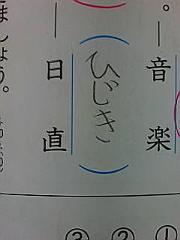 音楽
ひじき
日直
ましょう。
①
②
③